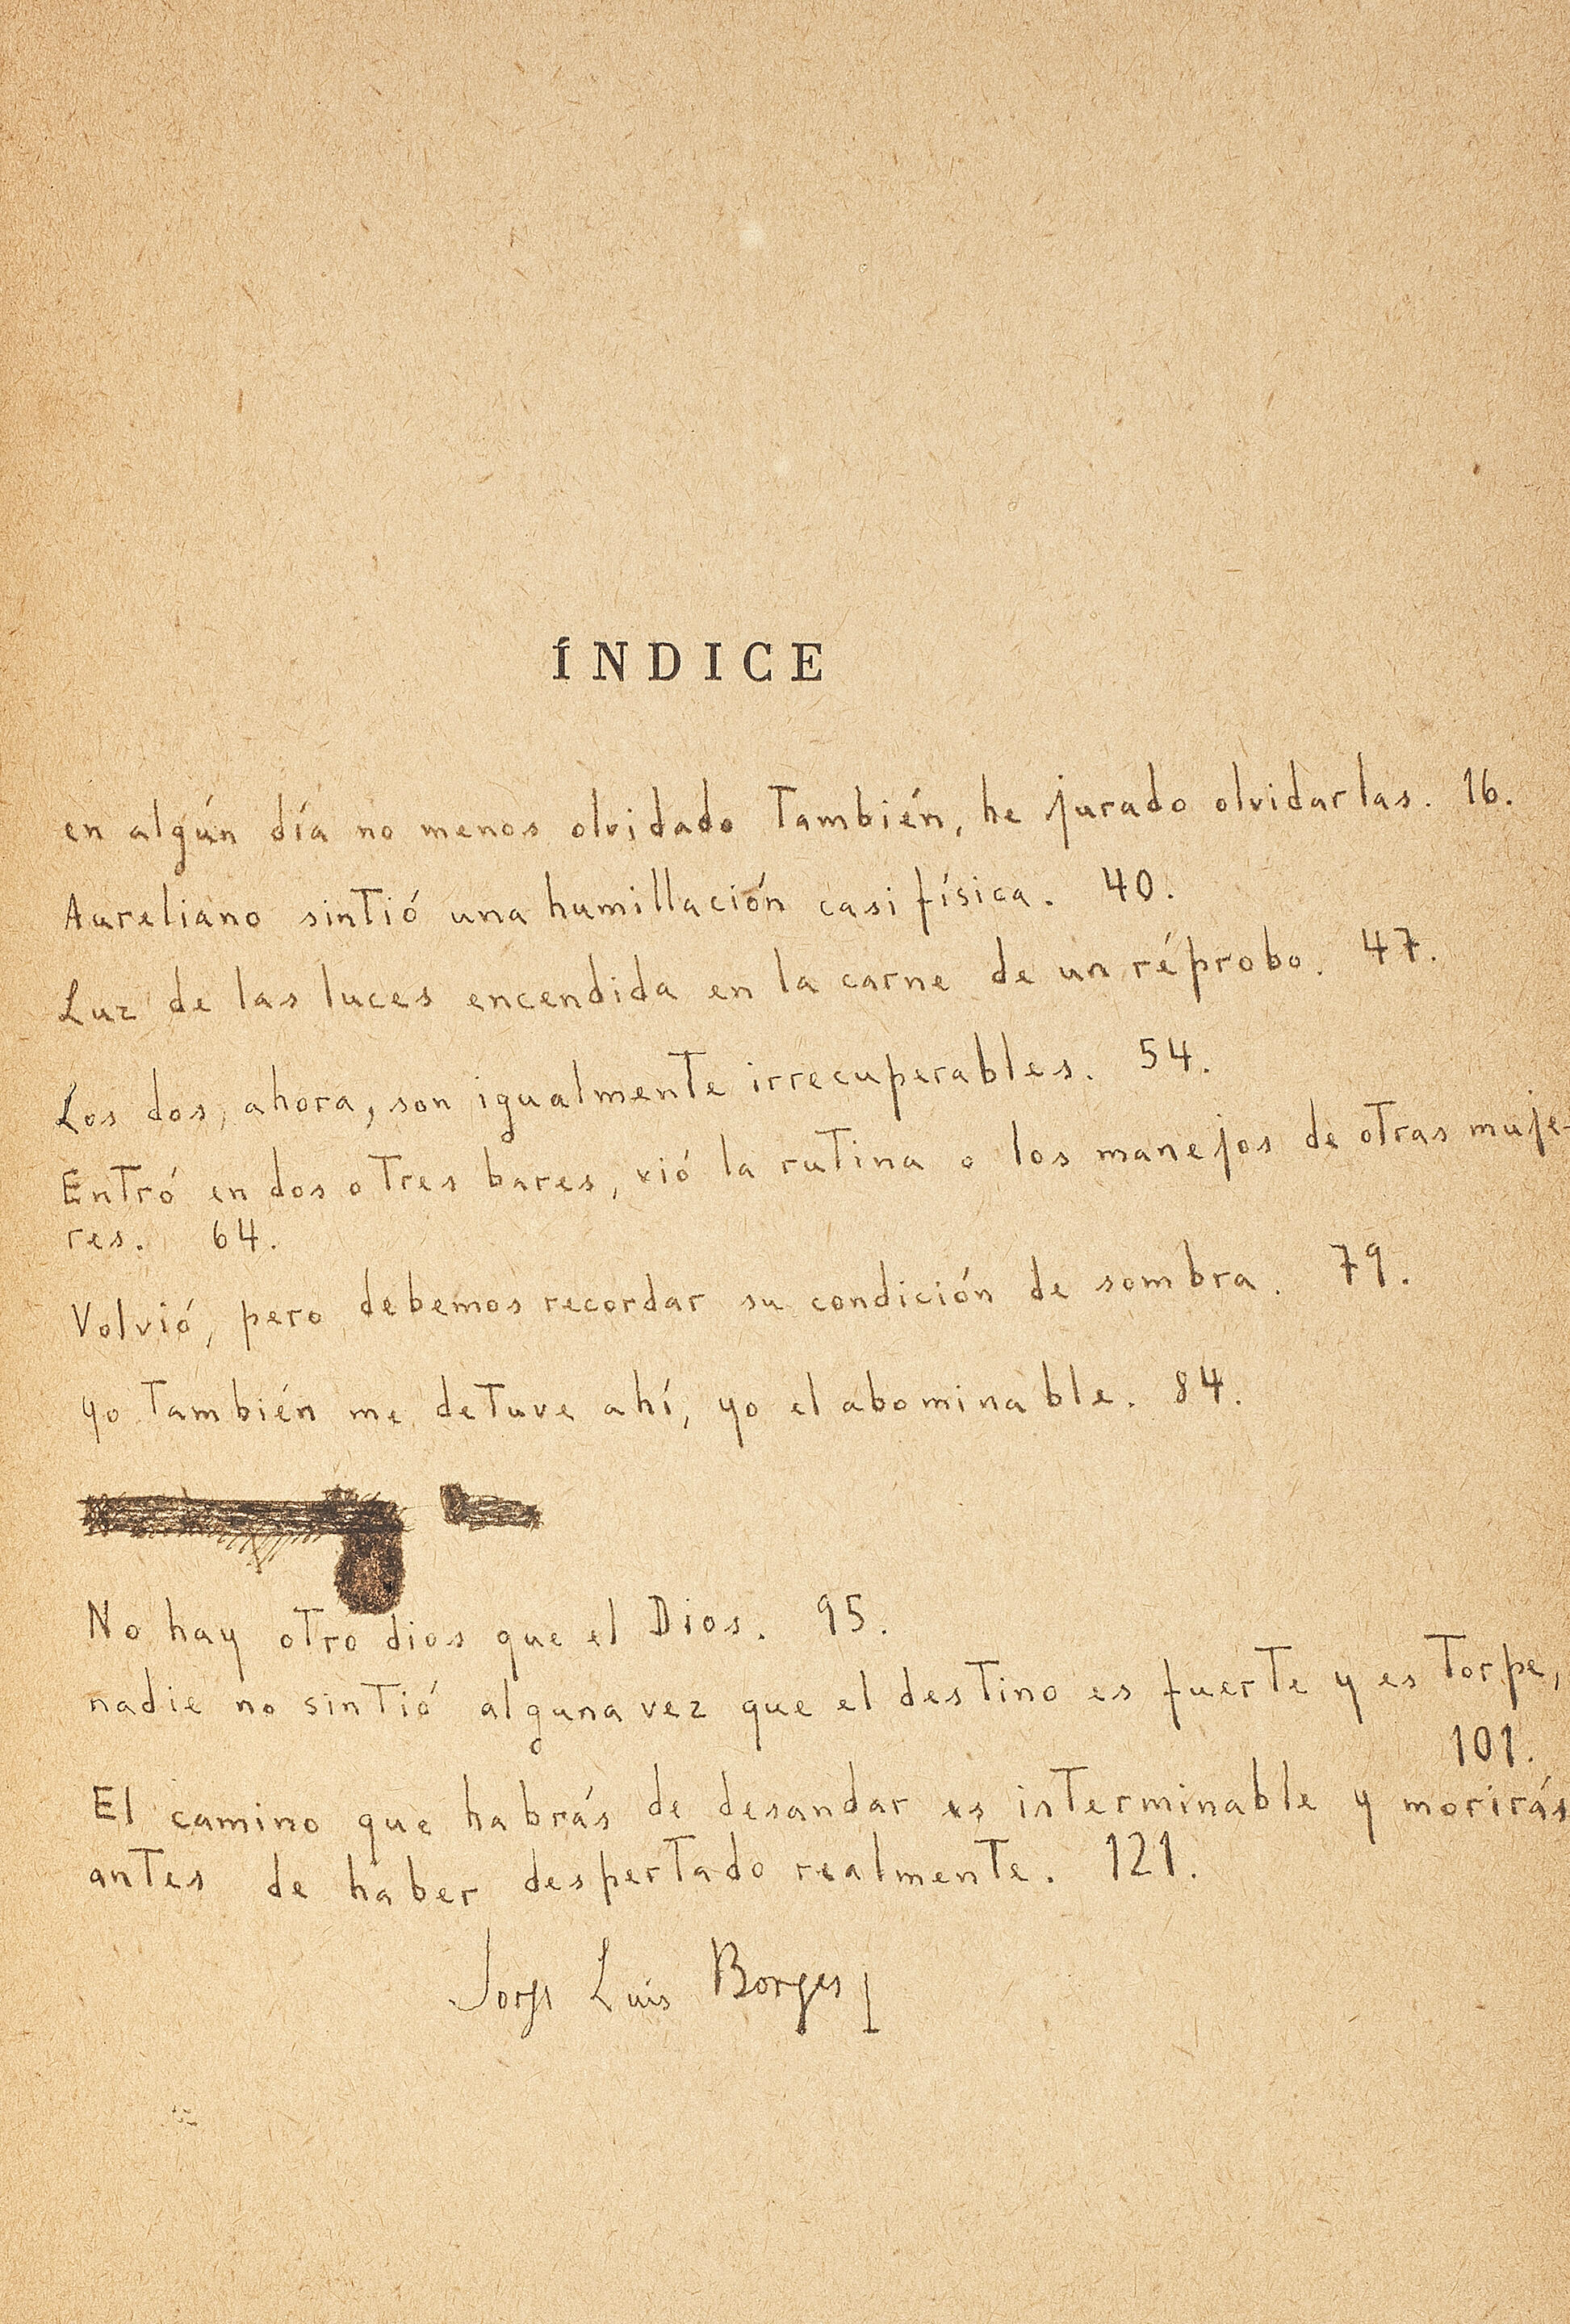 ÍNDICE
en algún día no menos olvidado también, he jurado olvidarlas. 16.
Aureliano sintió una humillación casi física. 40.
Luz de las luces encendida en la carne de un réprobo. 47.
Los dos, ahora, son igualmente irrecuperables. 54.
Entró en dos o tres bares, vió la rutina o los manejos de otras muje-
res. 64.
Volvió, pero debemos recordar su condición de sombra. 79.
yo también me detuve ahí, yo el abominable. 84.
No hay otro dios que el Dios. 95.
nadie no sintió alguna vez que el destino es fuerte y es torpe,
101.
El camino que habrás de desandar es interminable y morirás
antes de haber despertado realmente. 121.
Jorge Luis Borges